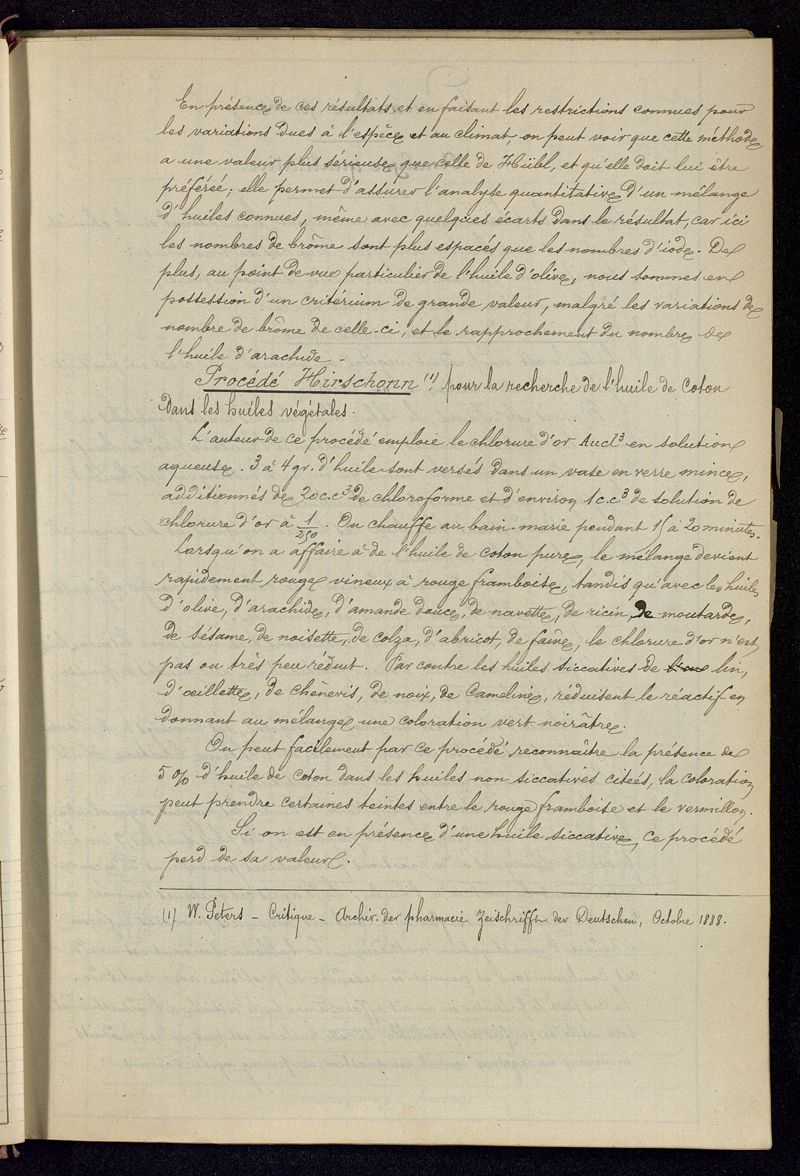 En présence de ces résultats et en faisant les restrictions connues pour
les variations dues à l'espèce et au climat, on peut voir que cette méthode
a une valeur plus sérieuse que celle de Hübl, et qu'elle doit lui être
préférée; elle permet d'assurer l'analyse quantitative d'un mélange
d'huiles connues, même avec quelques écarts dans le résultat, car ici
les nombres de brôme sont plus espacés que les nombres d'iode. De
plus, au point de vue particulier de l'huile d'olive, nous sommes en
possession d'un critérium de grande valeur, malgré les variations de
nombre de brôme de celle-ci, et le rapprochement du nombre de
l'huile d'arachide.
Procédé Hirschonn (1), pour la recherche de l'huile de Coton
dans les huiles végétales.
L'auteur de ce procédé emploie le chlorure d'or Aucl³ en solution
aqueuse. 3 à 4 gr. d'huile sont versés dans un vase en verre mince,
additionnés de 20 c.c³ de chloroforme et d'environ 1 c.c³ de solution de
chlorure d'or à 1/250. On chauffe au bain-marie pendant 15 à 20 minutes.
Lorsqu'on a affaire à de l'huile de coton pure, le mélange devient
rapidement rouge vineux à rouge framboise, tandis qu'avec les huiles
d'olive, d'arachide, d'amande douce, de navette, de ricin, de moutarde,
de sésame, de noisette, de colza, d'abricot, de faîne, le chlorure d'or n'est
pas ou très peu réduit. Par contre les huiles siccatives de lin,
d'oeillette, de chènevis, de noix, de Cameline, réduisent le réactif en
donnant au mélange une coloration vert noirâtre.
On peut facilement par ce procédé reconnaître la présence de
5 % d'huile de coton dans les huiles non siccatives citées, la coloration
peut prendre certaines teintes entre le rouge framboise et le vermillon.
Si on est en présence d'une huile siccative, ce procédé
perd de sa valeur.
(1) W. Peters - Critique - Archiv. der pharmacie Zeischrifft der Deutschen, Octobre 1888.